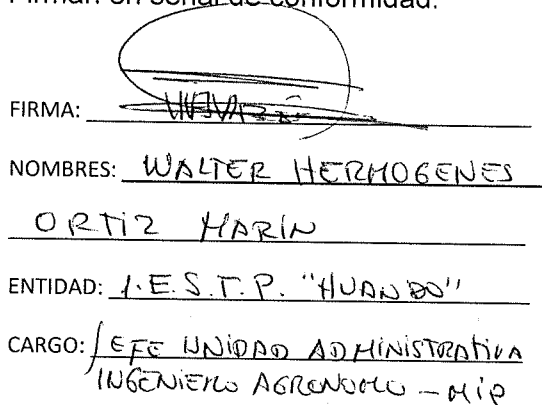 Firmar: en señal de conformidad.
FIRMA:
NOMBRES: WALTER HERMOGENES
ORTIZ MARÍN
ENTIDAD: I.E.S.T.P. "HUANDO"
CARGO: JEFE UNIDAD ADMINISTRATIVA
INGENIERO AGRONOMO - MIP